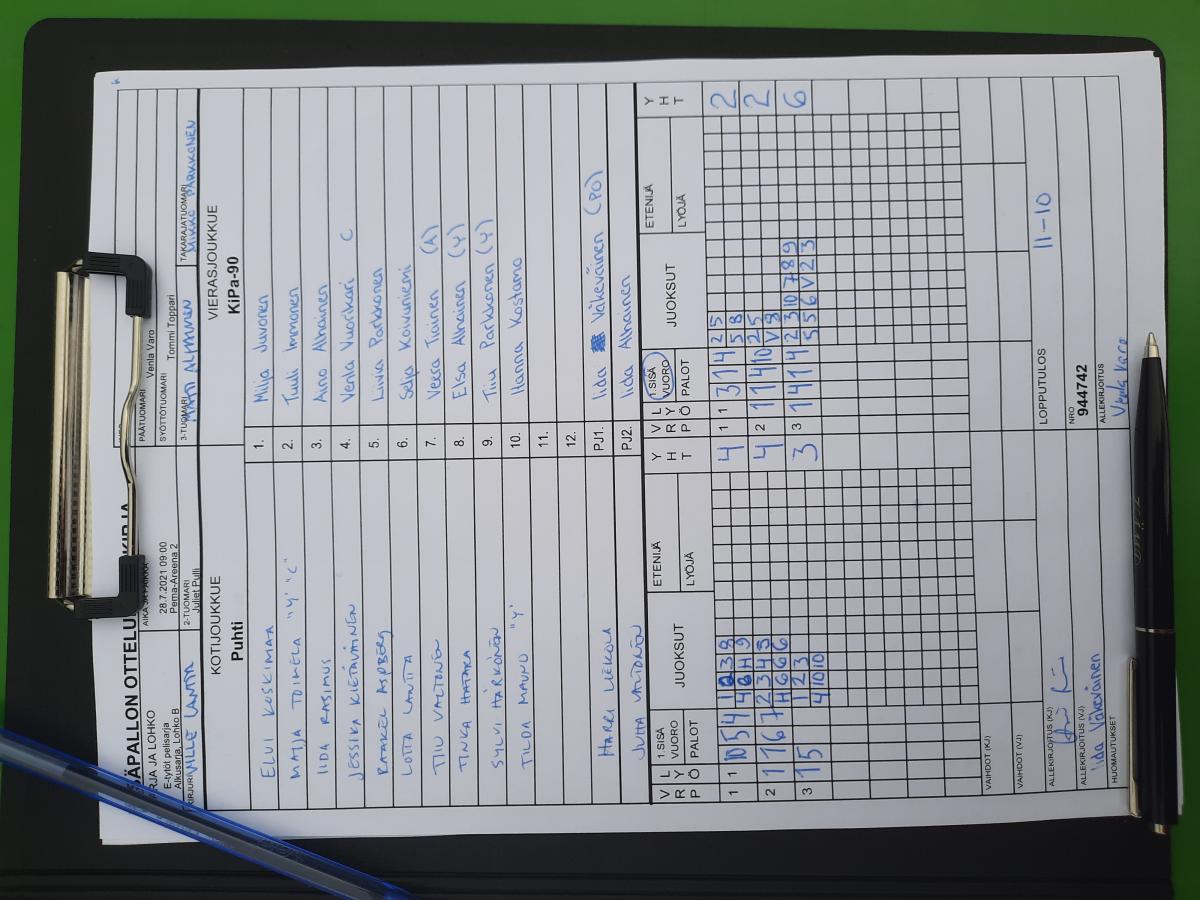 SÄPALLON OTTELU
KIRJA
RJA JA LOHKO
E-tytöt pelisarja
Alkusarja, Lohko B
AIKA JA PAIKKA
28.7.2021 09:00
Pema-Areena 2
PÄÄTUOMARI
Venla Varo
SYÖTTÖTUOMARI
Tommi Toppari
KIRJURI
VILLE LANTTA
2-TUOMARI
Juliet Pulli
3-TUOMARI
MATTI ALMMINEN
TAKARAJATUOMARI
MIKKO PARKKONEN
KOTIJOUKKUE
Puhti
VIERASJOUKKUE
KiPa-90
ELVI KOSKIMAA 1. Milja Juvonen
MATJA TOIMELA "Y" "C" 2. Tuuli Immonen
IIDA RASIMUS 3. Aino Alhainen
JESSIKA KIETÄVÄINEN 4. Venla Vuorikari C
RAAKEL ASPBERG 5. Liivia Parkkonen
LOTTA LANTTA 6. Selja Koivuniemi
TIU VALTONEN 7. Veera Tiainen (A)
TINKA HATAKA 8. Elsa Alhainen (Y)
SYLVI HÄRKÖNEN 9. Tiiu Parkkonen (Y)
TILDA MAUNO "Y" 10. Hanna Kostamo
11.
12.
HARRI LIEKOLA PJ1. Iida Väkeväinen (PO)
JUTTA VALTONEN PJ2. Iida Alhainen
V R P L Y Ö 1.SISÄ VUORO PALOT JUOKSUT ETENIJÄ LYÖJÄ Y H T
V R P L Y Ö 1.SISÄ VUORO PALOT JUOKSUT ETENIJÄ LYÖJÄ Y H T
1 1 10 5 4 4 1 1 3 1 4 2 5 2
5 8
2 1 1 6 7 2 3 4 3 4 2 1 1 4 10 2 5 2
H 6 6 6 V 8
3 1 5 1 2 3 3 3 1 4 1 4 2 3 10 7 8 9 6
4 10 10 5 5 6 V 2 3
VAIHDOT (KJ)
VAIHDOT (VJ)
ALLEKIRJOITUS (KJ)
LOPPUTULOS
11-10
ALLEKIRJOITUS (VJ)
Iida Väkeväinen
NRO
944742
HUOMAUTUKSET
ALLEKIRJOITUS
Venla Varo